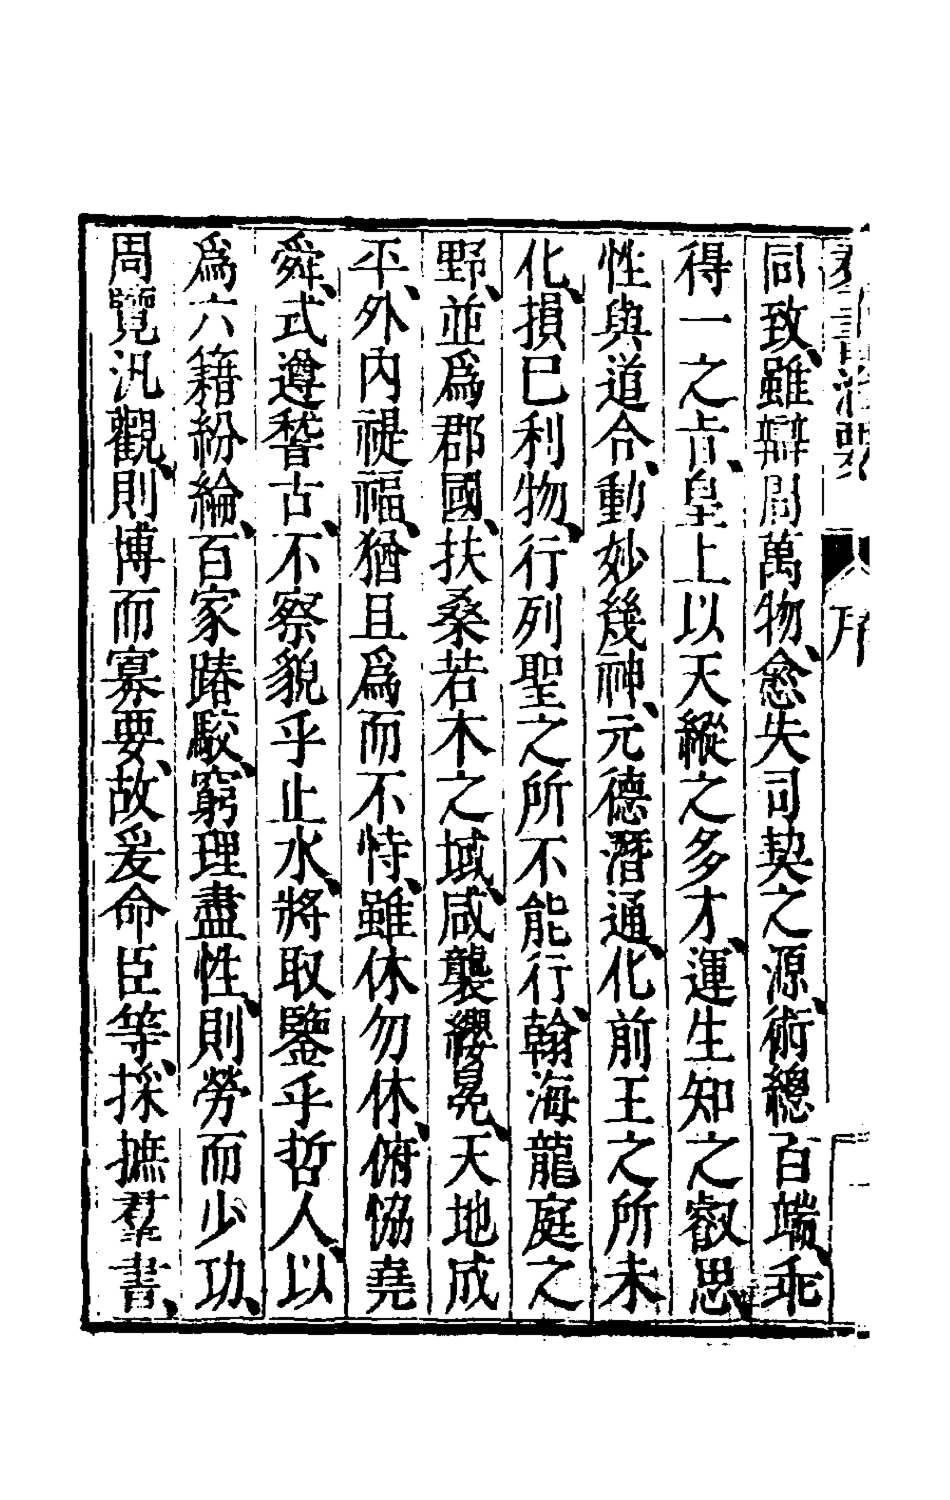 羣書治要 序
同致、雖辯周萬物、愈失司契之源、術總百端、乖
得一之旨、皇上以天縱之多才、運生知之叡思、
性與道合、動妙幾神、元德潛通、化前王之所未
化、損已利物、行列聖之所不能行、翰海龍庭之
野、並爲郡國、扶桑若木之域、咸襲纓冕、天地成
平、外內禔福、猶且爲而不恃、雖休勿休、俯協堯
舜、式遵稽古、不察貌乎止水、將取鑒乎哲人、以
爲六籍紛綸、百家踳駮、窮理盡性、則勞而少功、
周覽汎觀、則博而寡要、故爰命臣等、採摭羣書、